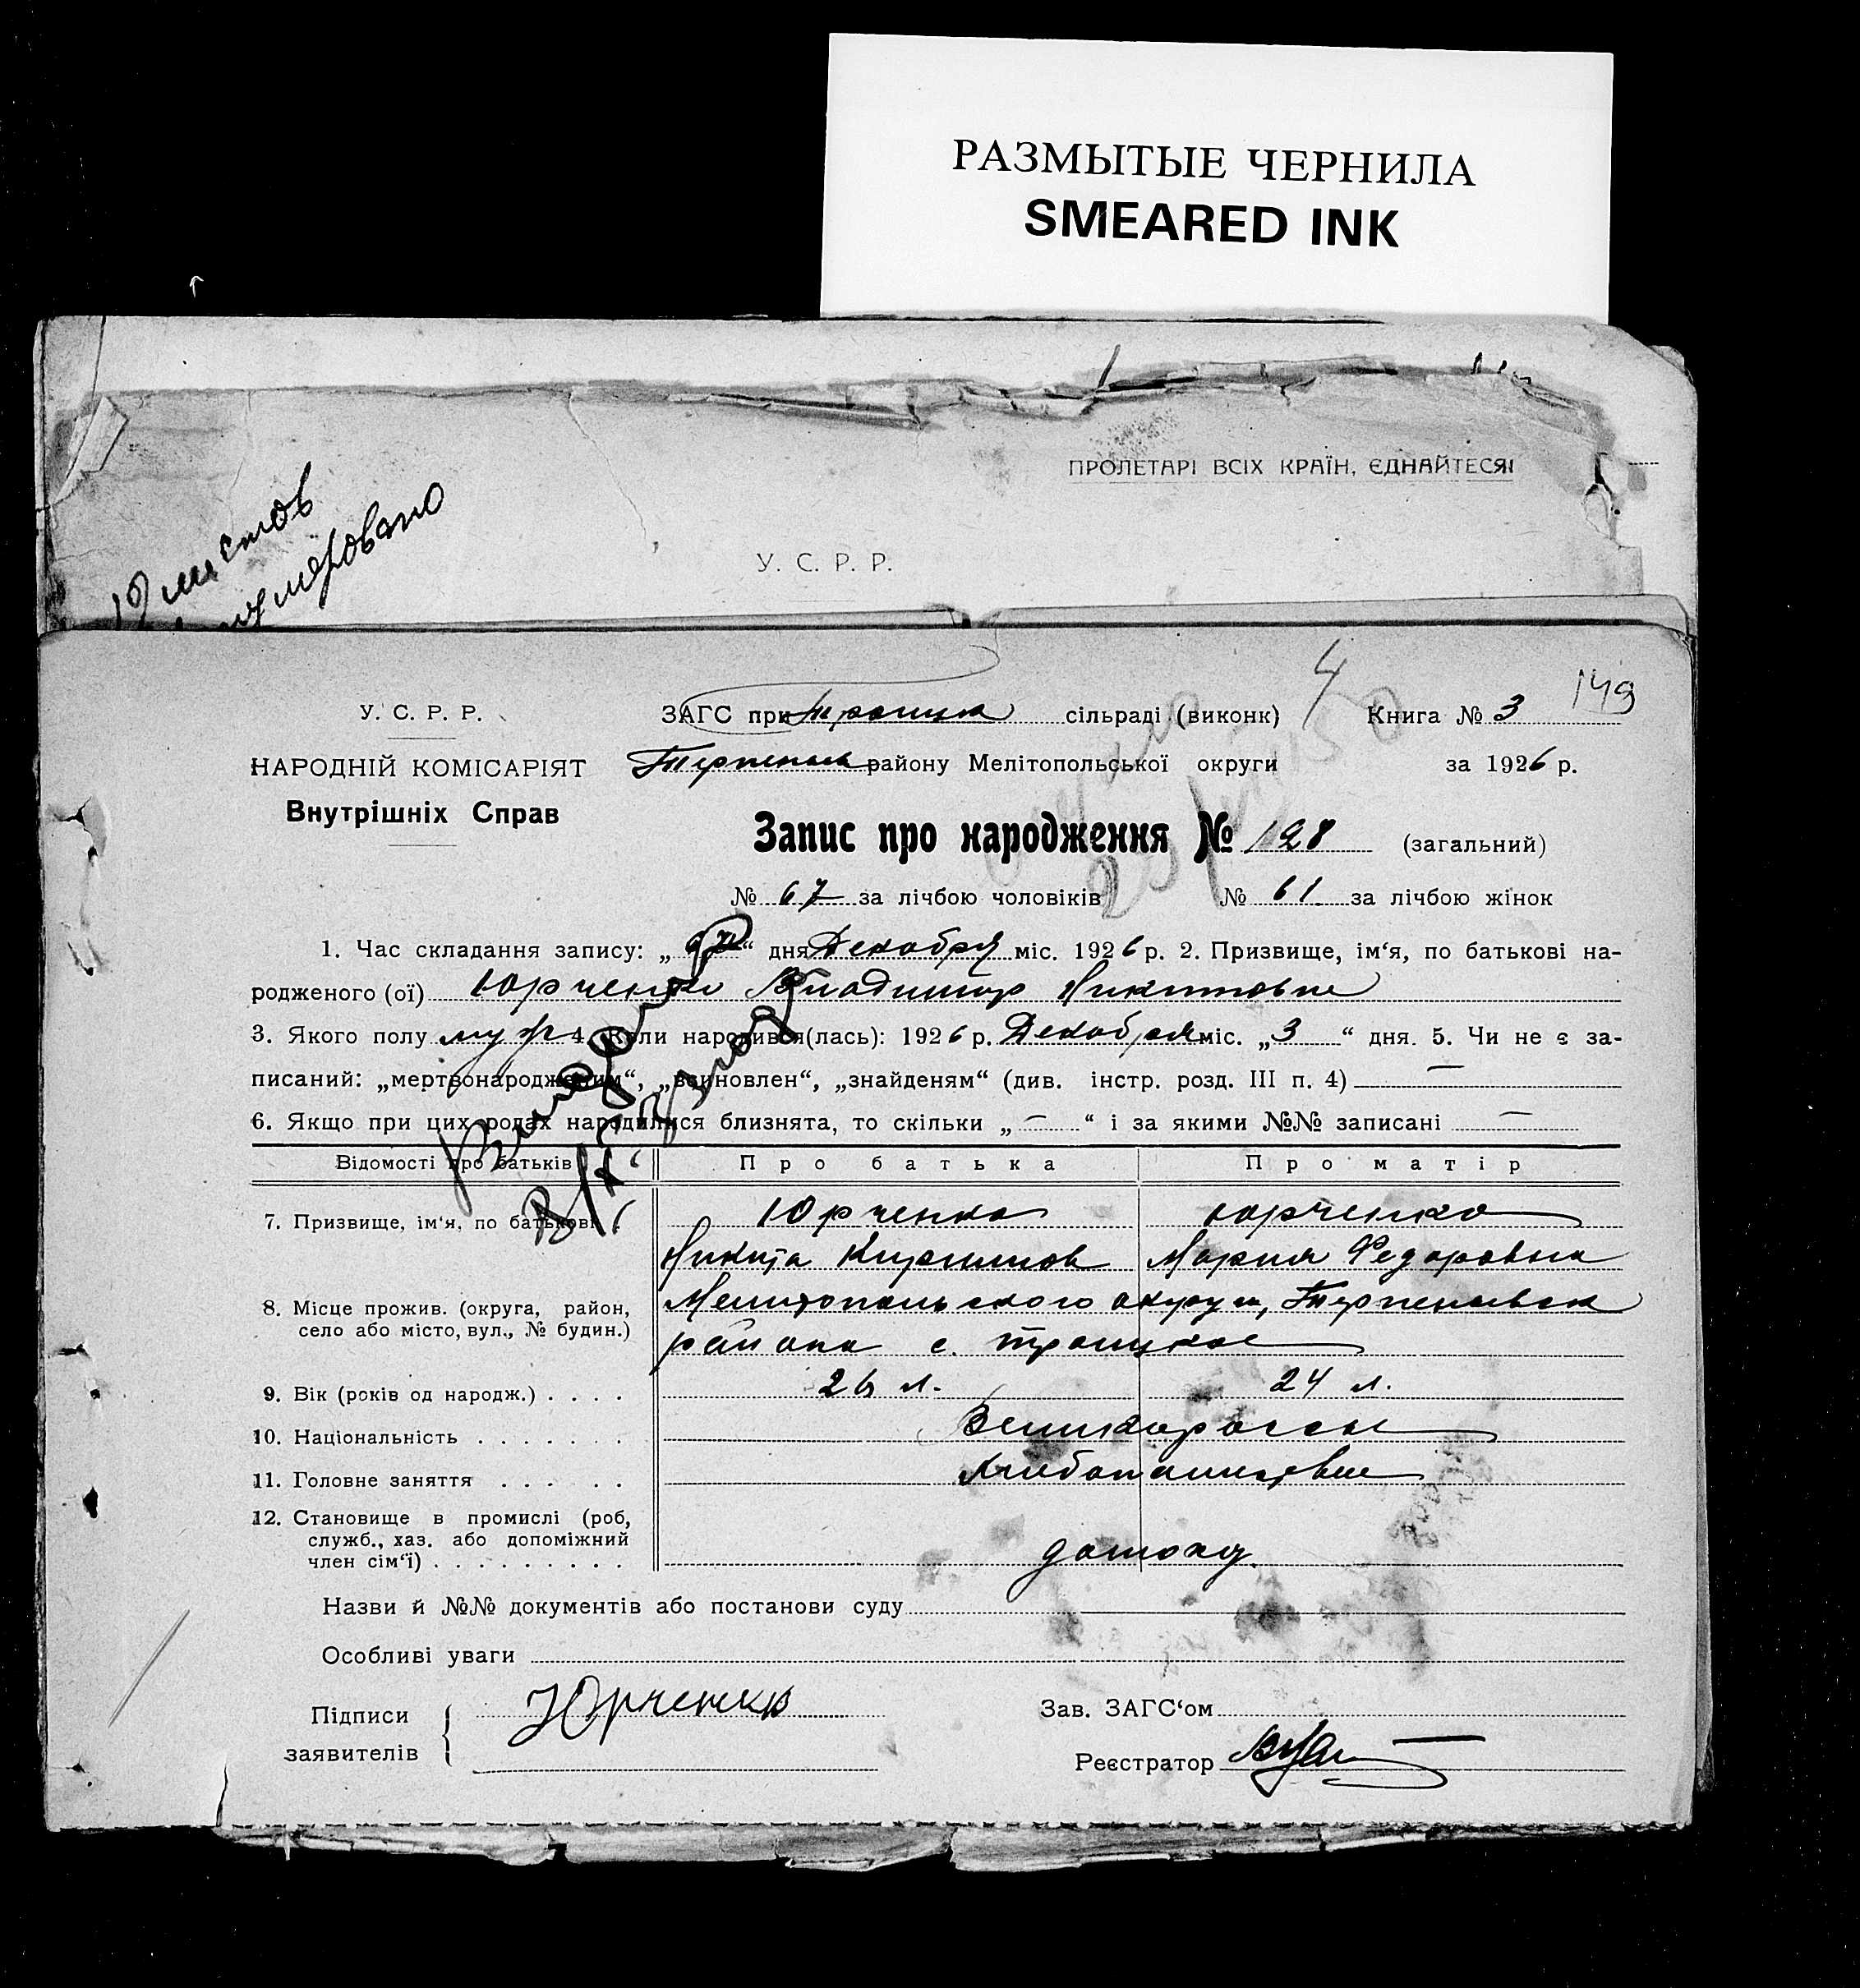 РАЗМЫТЫЕ ЧЕРНИЛА
SMEARED INK
ПРОЛЕТАРІ ВСІХ КРАЇН, ЄДНАЙТЕСЯ!
листов
У. С. Р. Р.
149
У. С. Р. Р.
ЗАГС при Троицк сільраді (виконк)
4
Книга № 3
НАРОДНІЙ КОМІСАРІЯТ
району Мелітопольської округи
за 1926 р.
Внутрішніх Справ
Запис про народження № 128 (загальний)
№ 67 за лічбою чоловіків № 61 за лічбою жінок
1. Час складання запису: „ “ дня Декабря міс. 1926 р. 2. Призвище, ім‘я, по батькові на-
родженого (ої) Юрченко Владимир
3. Якого полу муж 4. Коли народився(лась): 1926 р. Декабря міс. „3“ дня. 5. Чи не є за-
писаний: „мертвонародженим“, „всиновлен“, „знайденям“ (див. інстр. розд. III п. 4) —
6. Якщо при цих родах народилися близнята, то скільки „—“ і за якими №№ записані —
Відомості про батьків
Про батька
Про матір
7. Призвище, ім‘я, по батькові .
Юрченко
Юрченко
Никита Кирилов
Мария Федоровна
8. Місце прожив. (округа, район,
село або місто, вул., № будин.)
Мелитопольского округа, Терпеньевск
района с. Троицкое
9. Вік (років од народж.) . . . .
26 л.
24 л.
10. Національність . . . . . . .
Великороссы
11. Головне заняття . . . . .
12. Становище в промислі (роб,
служб., хаз. або допоміжний
член сім‘ї) . . . . . . . . .
Назви й №№ документів або постанови суду
Особливі уваги
Підписи
заявителів
Юрченко
Зав. ЗАГС‘ом
Реєстратор